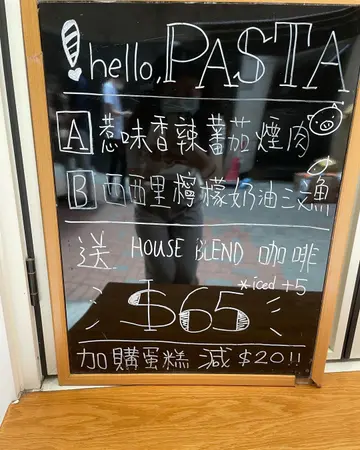 hello, PASTA
A 惹味香辣蕃茄煙肉
B 西西里檸檬奶油三文魚
送 HOUSE BLEND 咖啡
*iced +5
$65
加購蛋糕 減 $20!!